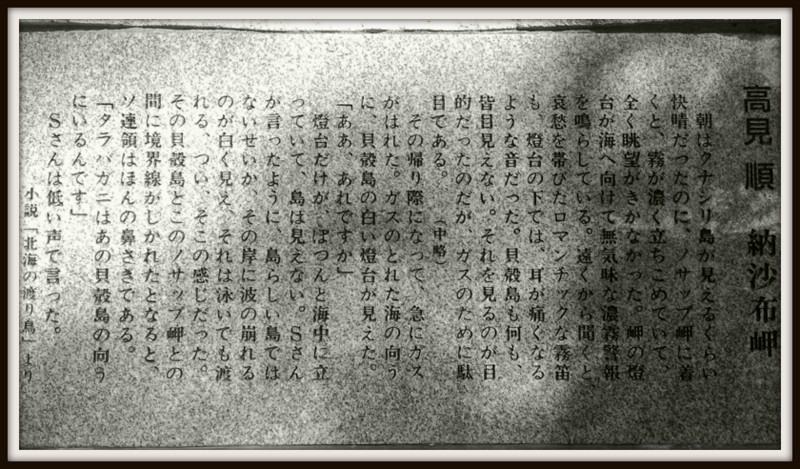 高見 順　納沙布岬
朝はクナシリ島が見えるくらい
快晴だったのに、ノサップ岬に着
くと、霧が濃く立ちこめていて、
全く眺望がきかなかった。岬の燈
台が海へ向けて無気味な濃霧警報
を鳴らしている。遠くから聞くと
哀愁を帯びたロマンチックな霧笛
も、燈台の下では、耳が痛くなる
ような音だった。貝殻島も何も、
皆目見えない。それを見るのが目
的だったのだが、ガスのために駄
目である。（中略）
その帰り際になって、急にガス
がはれた。ガスのとれた海の向う
に、貝殻島の白い燈台が見えた。
「ああ、あれですか」
燈台だけが、ぽつんと海中に立
っていて、島は見えない。Ｓさん
が言ったように、島らしい島では
ないせいか、その岸に波の崩れる
のが白く見え、それは泳いでも渡
れる、つい、そこの感じだった。
その貝殻島とこのノサップ岬との
間に境界線がしかれたとなると、
ソ連領はほんの鼻さきである。
「タラバガニはあの貝殻島の向う
にいるんです」
Ｓさんは低い声で言った。
小説「北海の渡り鳥」より